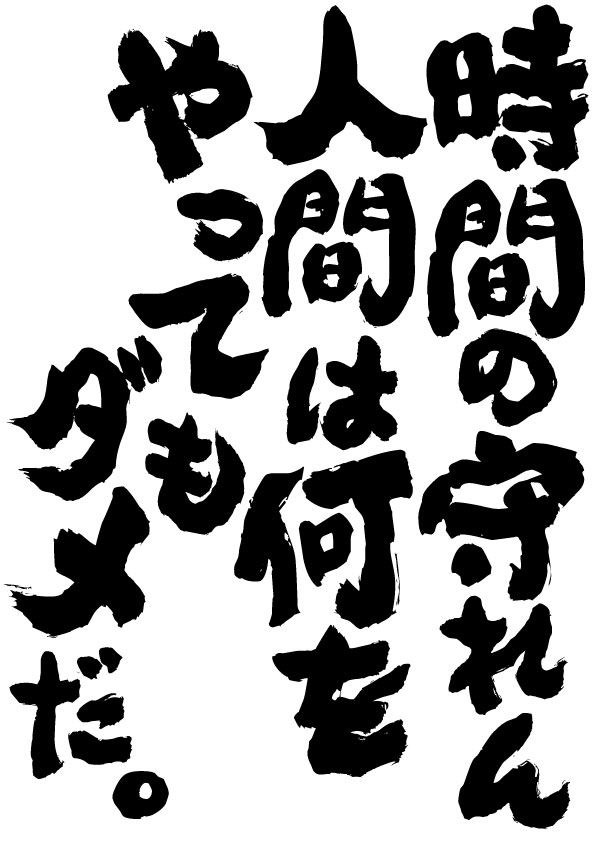 時間の守れん
人間は何を
やっても
ダメだ。